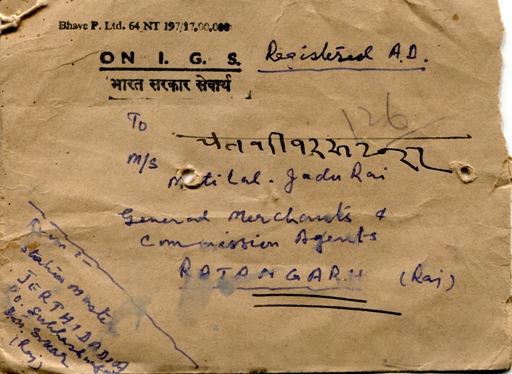 Bhave P. Ltd. 64 NT 197/17,00,000
ON I. G. S.
भारत सरकार सेवार्थ
Registered A.D.
126
To
M/s
Motilal. Jadu Rai
General Merchants &
Commission Agents
RATANGARH (Raj)
From :-
Station Master
JERTHI DADIA
P.O.
Sikar
(Raj)